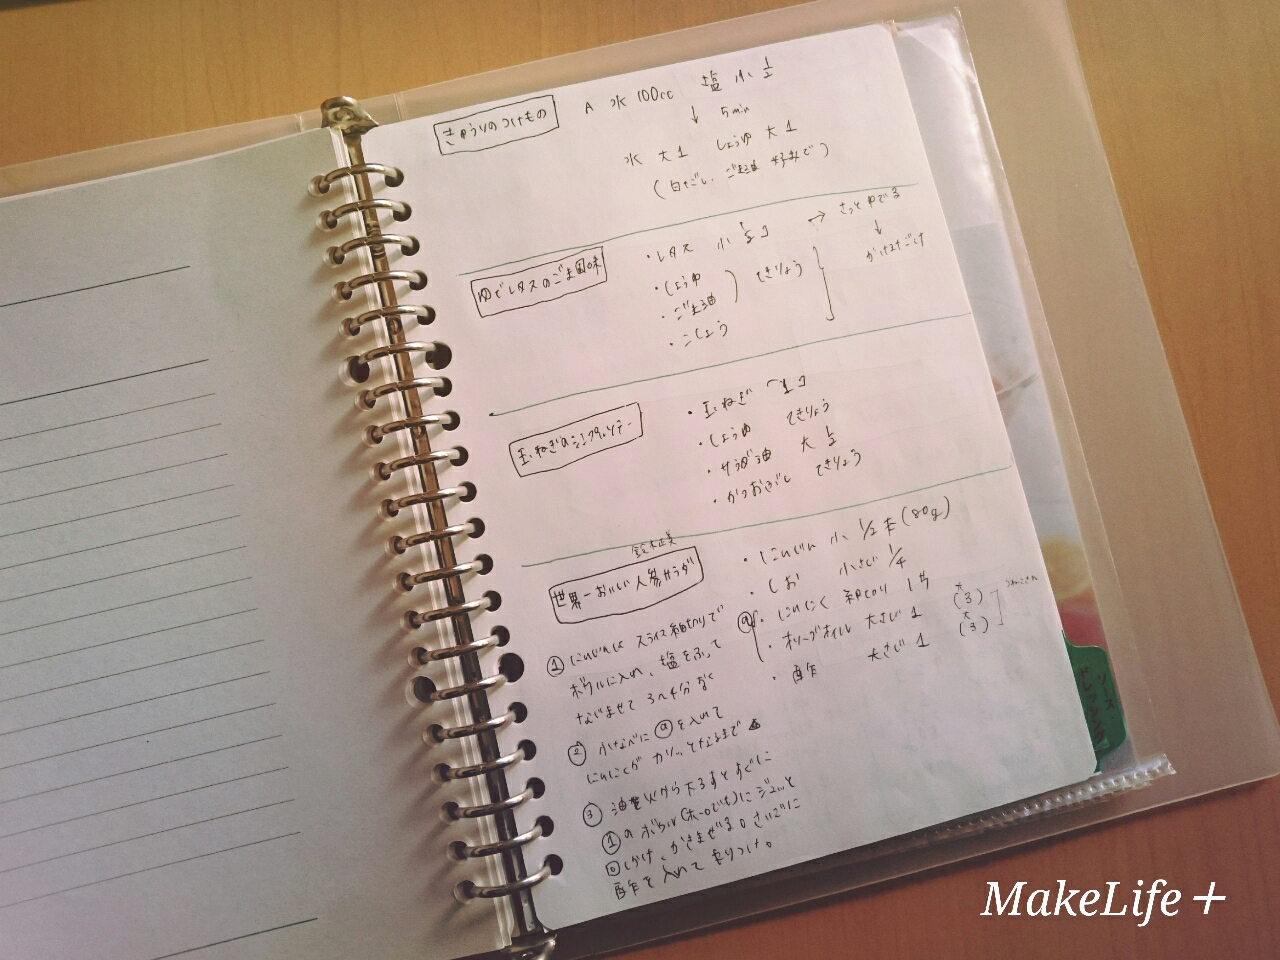 きゅうりのつけもの
A 水 100cc 塩 小 1/2
↓ 5min
水 大1 しょうゆ 大1
(白だし、ごま油 好みで)
ゆでレタスのごま風味
・レタス 小 1/2コ → さっとゆでる
・しょうゆ
・ごま油
てきりょう
・こしょう
↓
かけるだけ
玉ねぎの
・玉ねぎ 1コ
・しょうゆ てきりょう
・サラダ油 大 1/2
・かつおぶし てきりょう
鈴木正美
世界一おいしい人参サラダ
・にんじん 小 1/2本(80g)
・しお 小さじ 1/4
ⓐ ・にんにく 細切り 1片
・オリーブオイル 大さじ1 (大3)
・酢 大さじ1 (大3)
① にんじんは スライス 細切りで
ボウルに入れ、塩をふって
なじませて 3〜4分おく
② 小なべに ⓐ を入れて
にんにくが カリッとなるまで
③ 油を火から下ろすとすぐに
①のボウル(ホーローでも)にジュッと
かけ、かきまぜる。さいごに
酢を入れて もりつけ。
ソース
MakeLife+